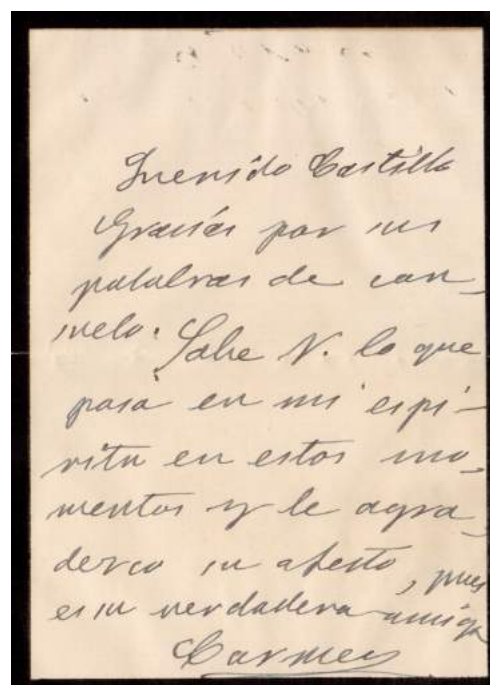 Querido Castillo
Gracias por sus
palabras de con-
suelo. Sabe V. lo que
pasa en mi espí-
ritu en estos mo-
mentos y le agra-
dezco su afecto, pues
es su verdadera amiga
Carmen